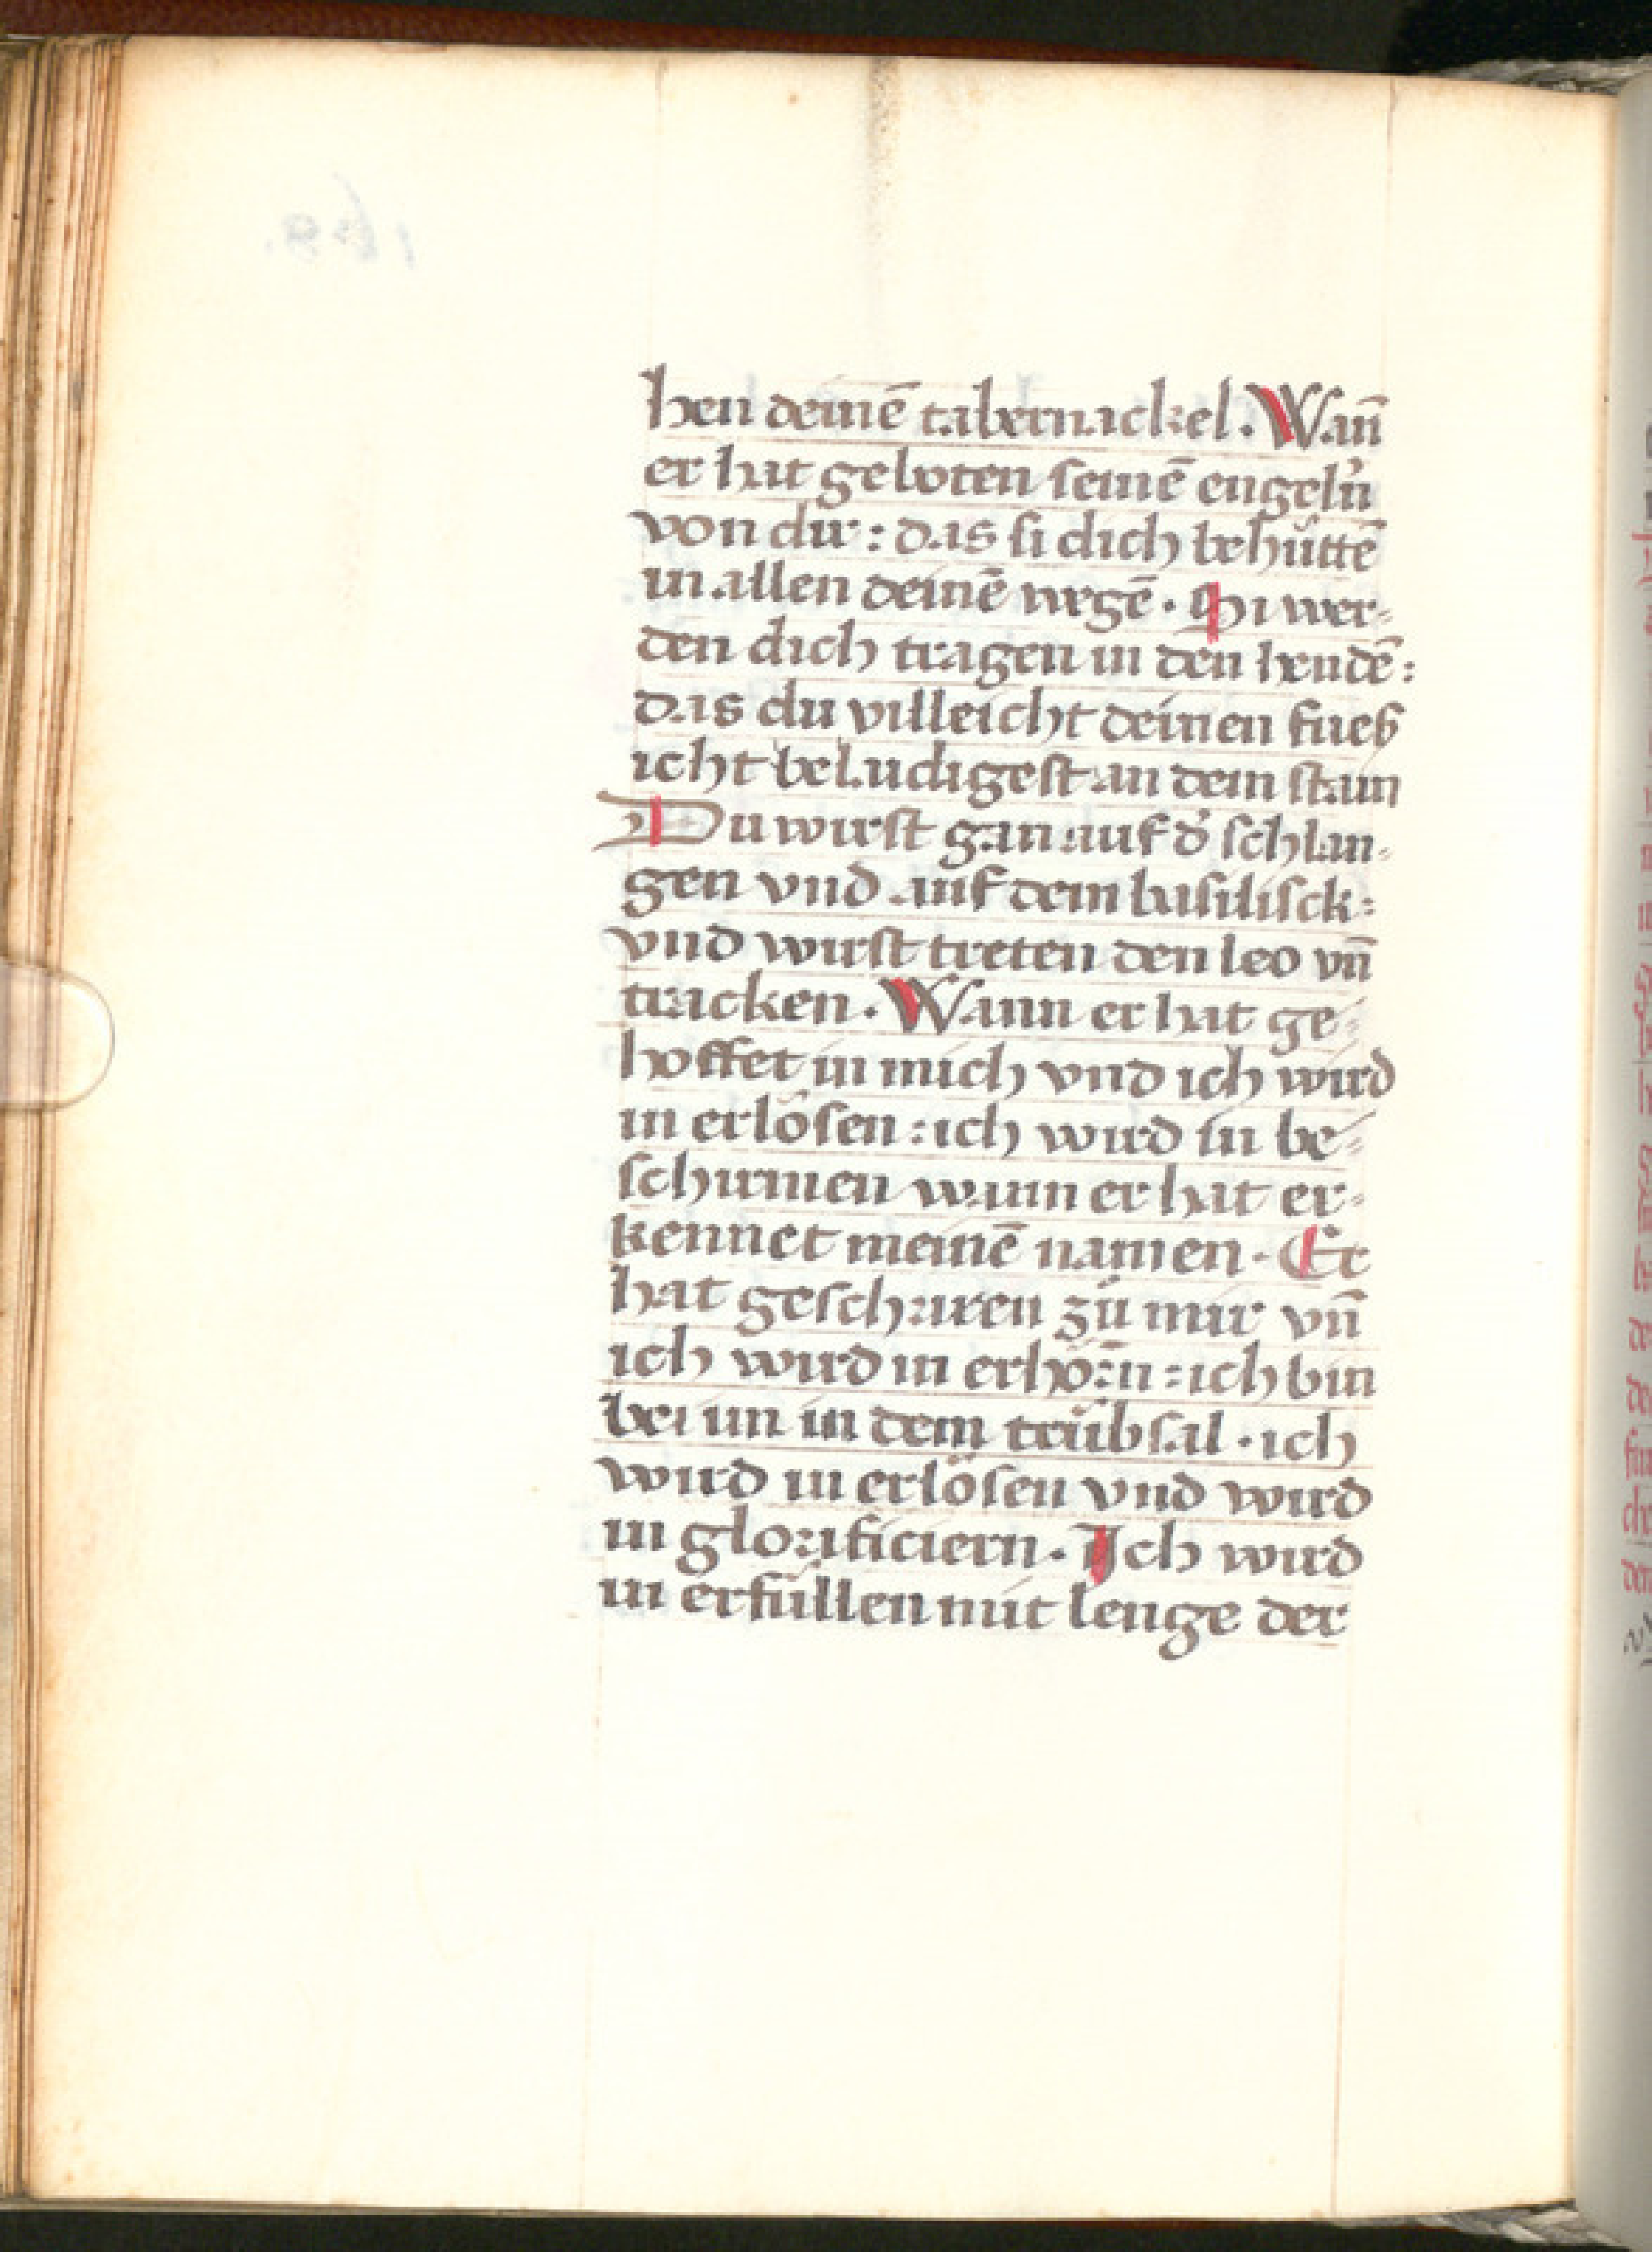 hen deinē tabernackel. Wañ
er hat geboten seinē engeln̄
von dir: das si dich behüttē
in allen deinē wegē. Si wer-
den dich tragen in den hendē:
das du villeicht deinen fueß
icht belaidigest an dem stain
Du wirst gan auf d' schlan-
gen vnd auf dem basilisck:
vnd wirst treten den leo vñ
tracken. Wann er hat ge-
hoffet in mich vnd ich wird
in erlösen: ich wird in be-
schirmen wann er hat er-
kennet meinē namen. Er
hat geschriren zů mir vñ
ich wird in erhörn: ich bin
bei im in dem trübsal. ich
wird in erlösen vnd wird
in glorificiern. Ich wird
in erfüllen mit lenge der